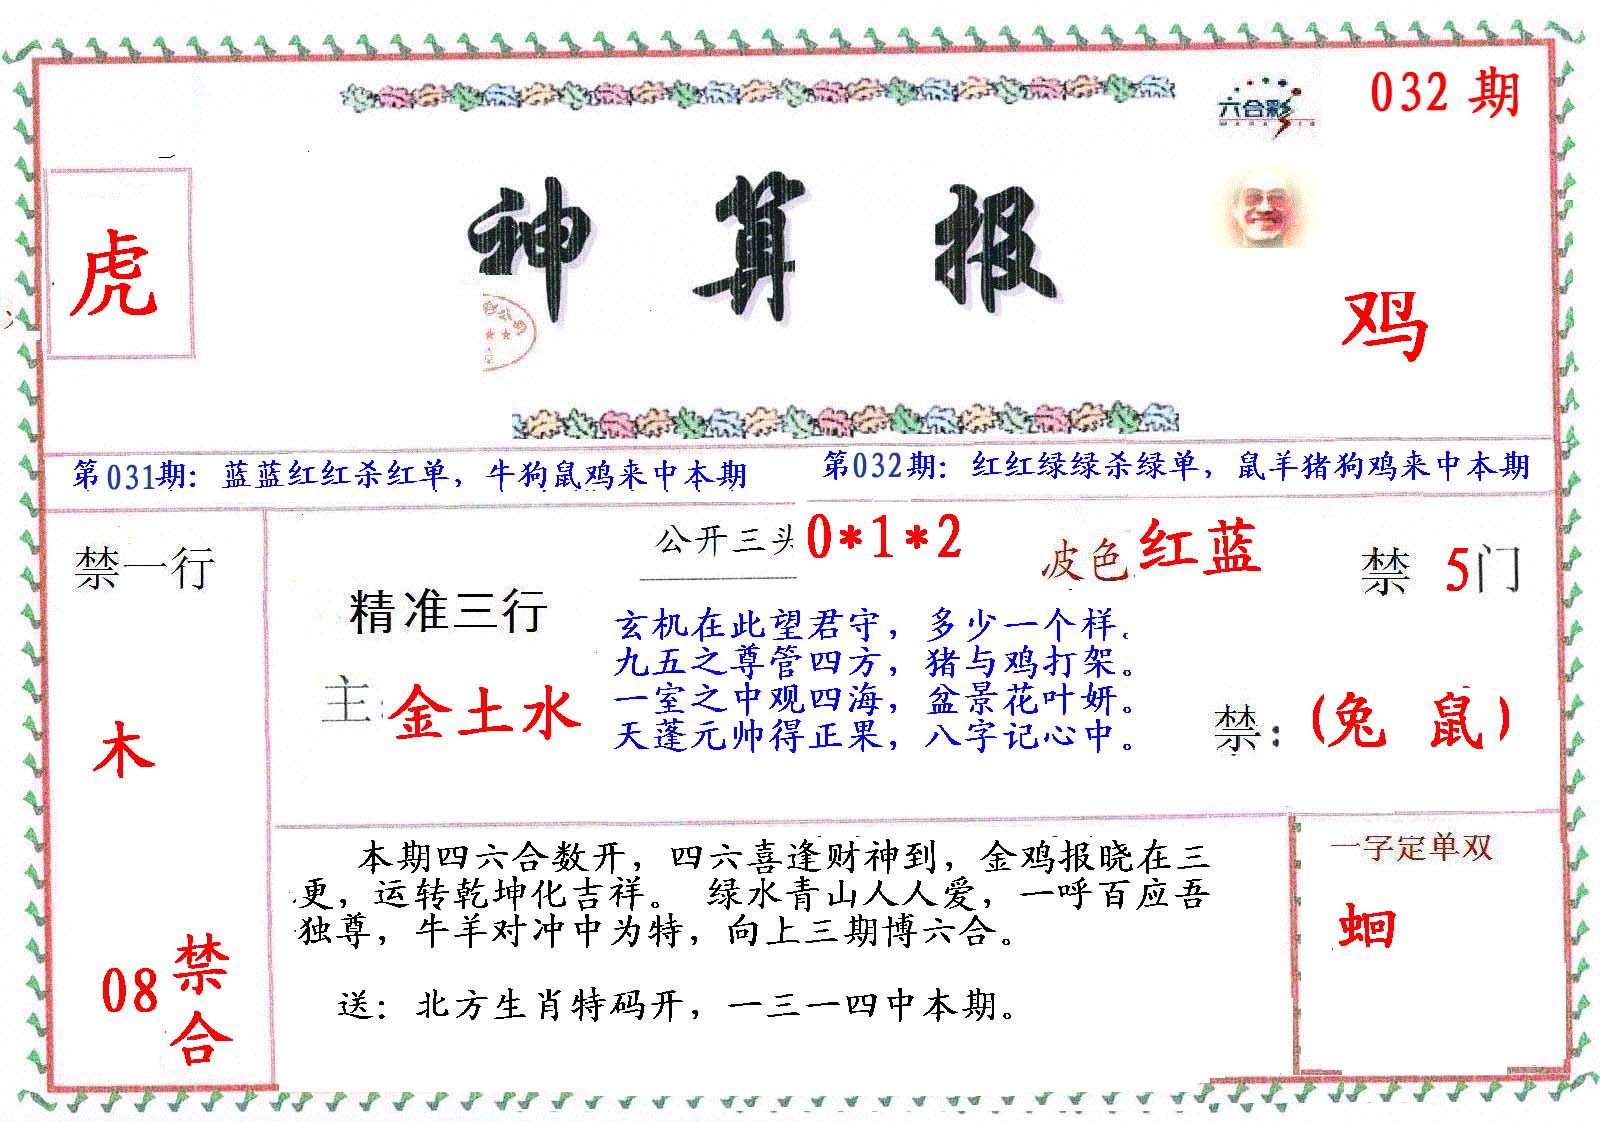 六合彩
032 期
神算报
虎
鸡
第031期：蓝蓝红红杀红单，牛狗鼠鸡来中本期
第032期：红红绿绿杀绿单，鼠羊猪狗鸡来中本期
禁一行
木
08 禁合
公开三头 0*1*2
波色 红蓝
禁 5门
精准三行
主：金土水
玄机在此望君守，多少一个样。
九五之尊管四方，猪与鸡打架。
一室之中观四海，盆景花叶妍。
天蓬元帅得正果，八字记心中。
禁：（兔 鼠）
本期四六合数开，四六喜逢财神到，金鸡报晓在三
更，运转乾坤化吉祥。 绿水青山人人爱，一呼百应吾
独尊，牛羊对冲中为特，向上三期博六合。
送：北方生肖特码开，一三一四中本期。
一字定单双
蛔